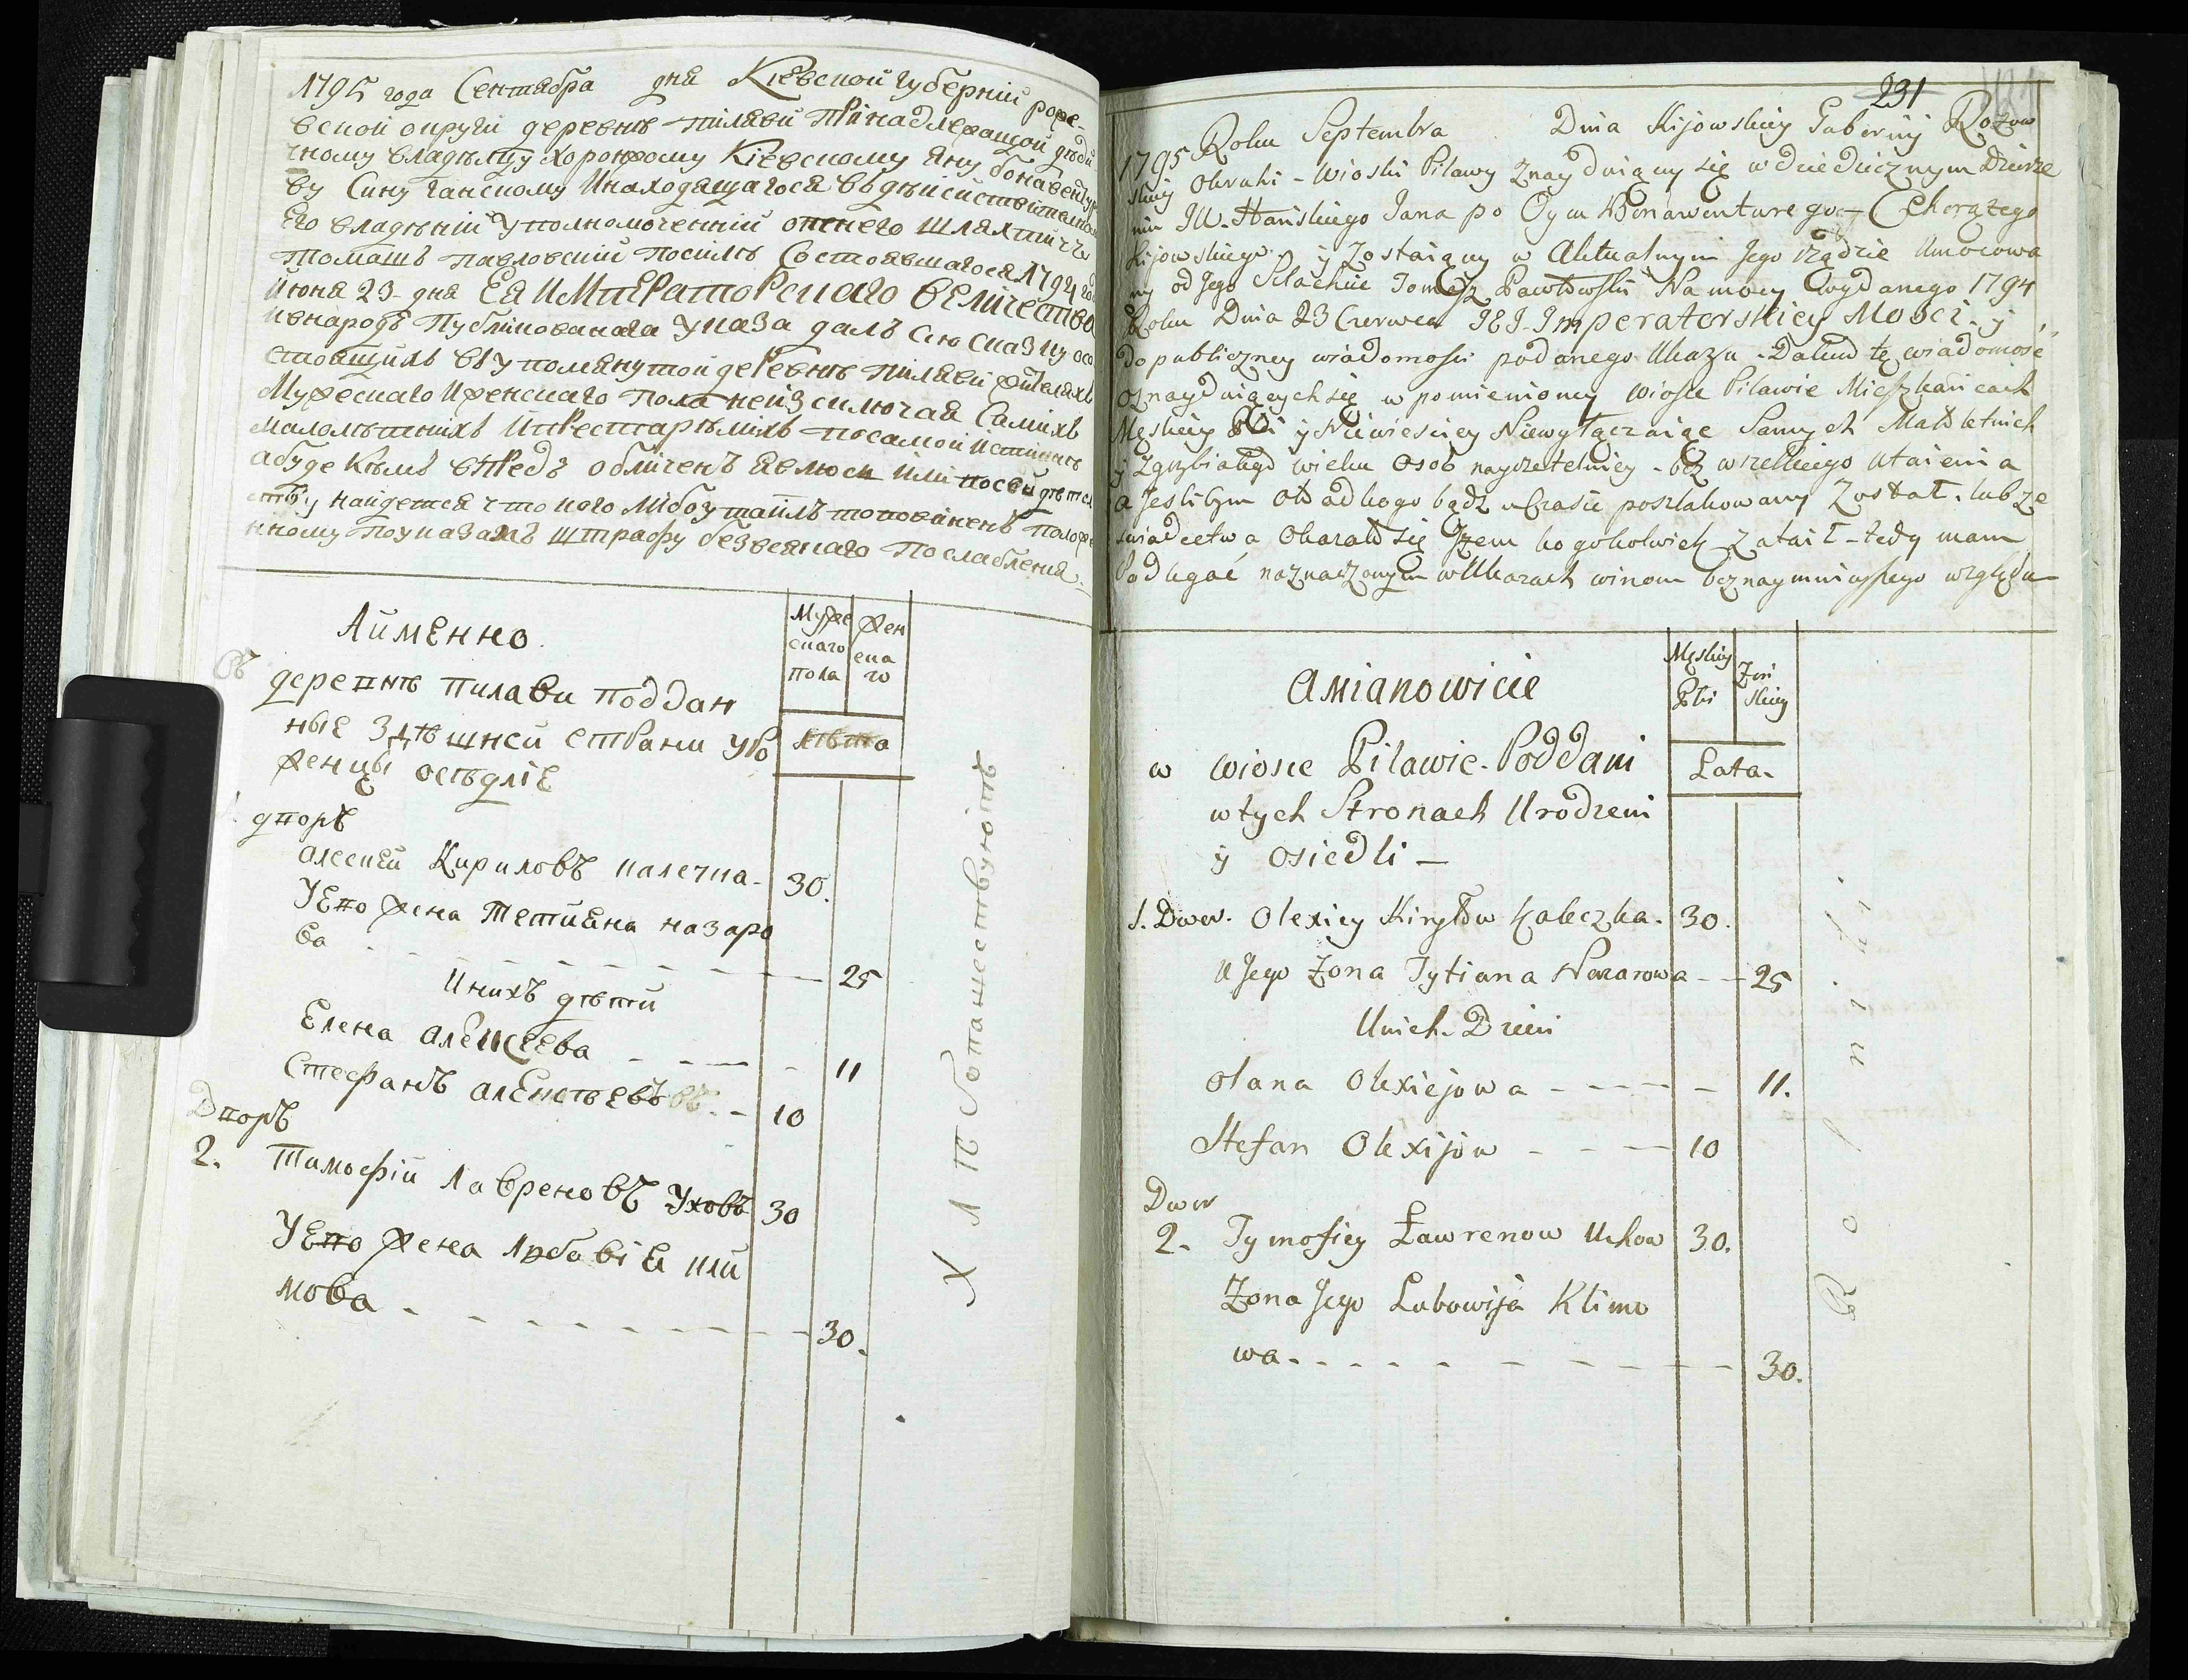 1795 года Сентября дня Кіевской губерніи роже-
вской округи деревнѣ пилявы принадлежащой дѣди
чному владѣлцу хоронжому Кіевскому Яну бонавенту
ву Сину ганскому Инаходящагося вдѣйствителном
Его владѣніи Уполномоченній отнего шляхтичъ
томашъ павловскій посилѣ Состоявшагося 1794 год
Июня 23 дня Ея ИМПЕРаторскаго величества
ивнародъ Публикованаго указа далъ сію сказку осо
стоящихъ вупомянутой деревнѣ пилявы жителяхъ
Мужескаго Иженскаго пола неизключая Самихъ
малолѣтнихъ Ипрестарѣлихъ посамой истиннѣ
абуде кѣмъ вперѣдъ обличенъ явлюсь или посвидѣтел
ству найдется что кого Либо утаилъ топовиненъ положе
нному поуказамъ штрафу безвсякаго послабленія.
Аименно.
Мужескаго пола
женскаго
лѣта
Въ деревнѣ пилави поддан
ные здѣшней страни уро
женцы осѣдліе
1. дворъ
алексѣй Кириловъ калечка. 30.
Уево жена Тетиана назаро
ва - - - 25
Унихъ дѣти
Елена алексеева - - - 11
Стефанъ алексѣевъ - 10
Дворъ
2. Тимофій Лавреновъ Уховъ 30
Уево жена Любавія кли
мова - - - 30.
Хлѣбопашествуютъ
231
1795 Roku Septembra Dnia Kijowskiey Guberniy Rożow
skiey Okruhi - Wioski Pilawy znayduiącey się w dziedzicznym Dzierże
niu JW. Hańskiego Jana po Oycu Bonawenturego - Chorążego
Kijowskiego y zostaiącey w Aktualnym Jego rządzie Umocowa
ny od Jego Szlachcic Tomasz Pawłowski Na mocy wydanego 1794
Roku Dnia 23 Czerwca JEJ Imperatorskiey Mości y
do publiczney wiadomości podanego Ukazu. Dałem tę wiadomość
oznayduiącychsię w pomienioney Wiosce Pilawie Mieszkańcach
Męskiey Płci y Niewiesciey Niewyłączaiąc Samych Małoletnich
y Zgrzybiałego wieku Osob nayrzetelniey - bez wszelkiego utaienia
a Jeslibym Od kogo bądz wczasie poszlakowany Został. lub ze
swiadectwa Okazało się Żzem kogokolwiek zataił - tedy mam
Podlegać naznaczonym wUkazach winom beznaymnieyszego względu
Amianowicie
Męskiey Płci
Żeńskiey
Lata.
w wiosce Pilawie. Poddani
wtych Stronach Urodzeni
y osiedli —
1. Dwor. Olexiey Kiryłow Kaleczka. 30.
U Jego Żona Tytiana Nazarowa - - 25
Unich Dzieci
Olana Olexiejowa - - - - 11.
Stefan Olexijow - - - 10
Dwor
2. Tymofiey Ławrenow Uchow 30.
Żona Jego Lubowija Klimo
wa - - - - 30.
Rolnicy